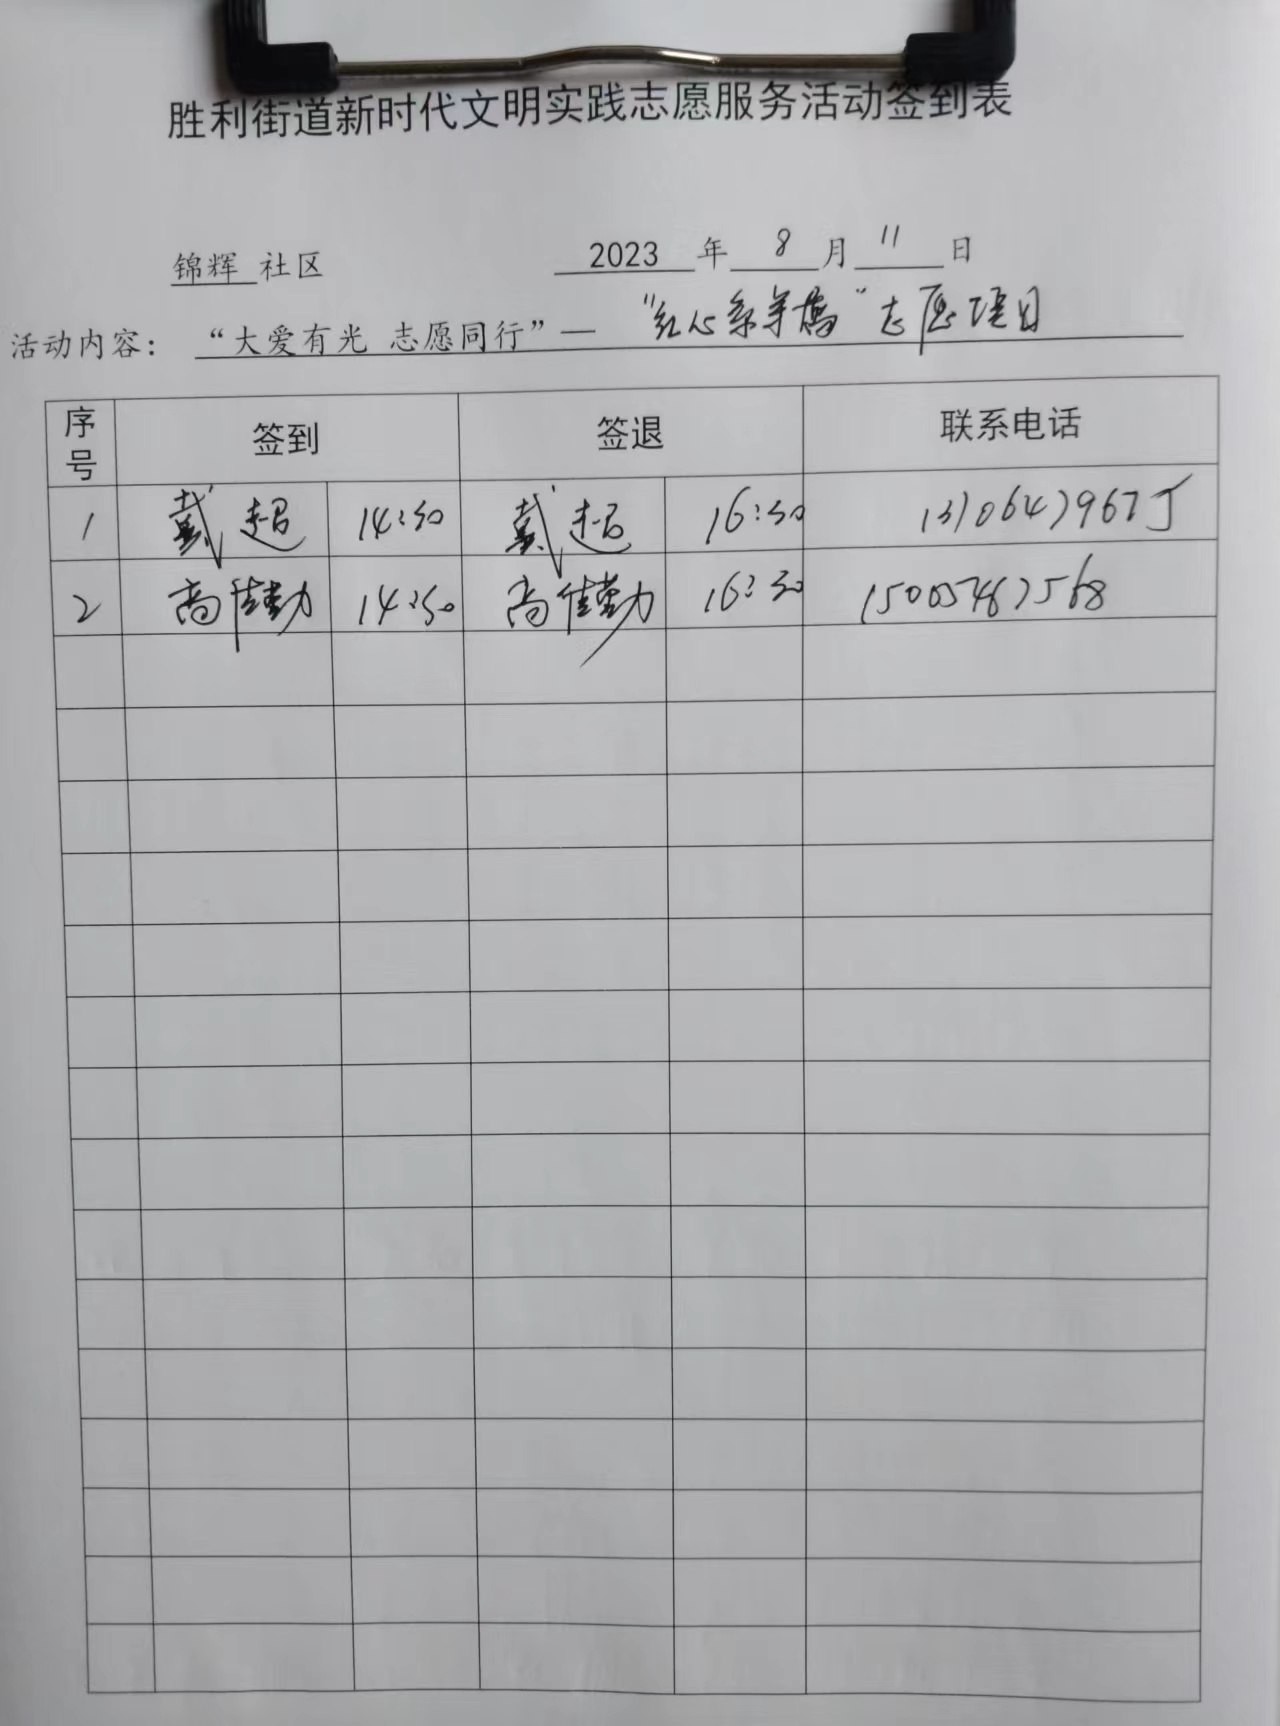 胜利街道新时代文明实践志愿服务活动签到表
锦辉 社区 2023 年 8 月 11 日
活动内容： “大爱有光 志愿同行”— “红心系羊角” 志愿项目
序号 签到 签退 联系电话
1 戴超 14:30 戴超 16:30
2 高佳勤 14:30 高佳勤 16:30